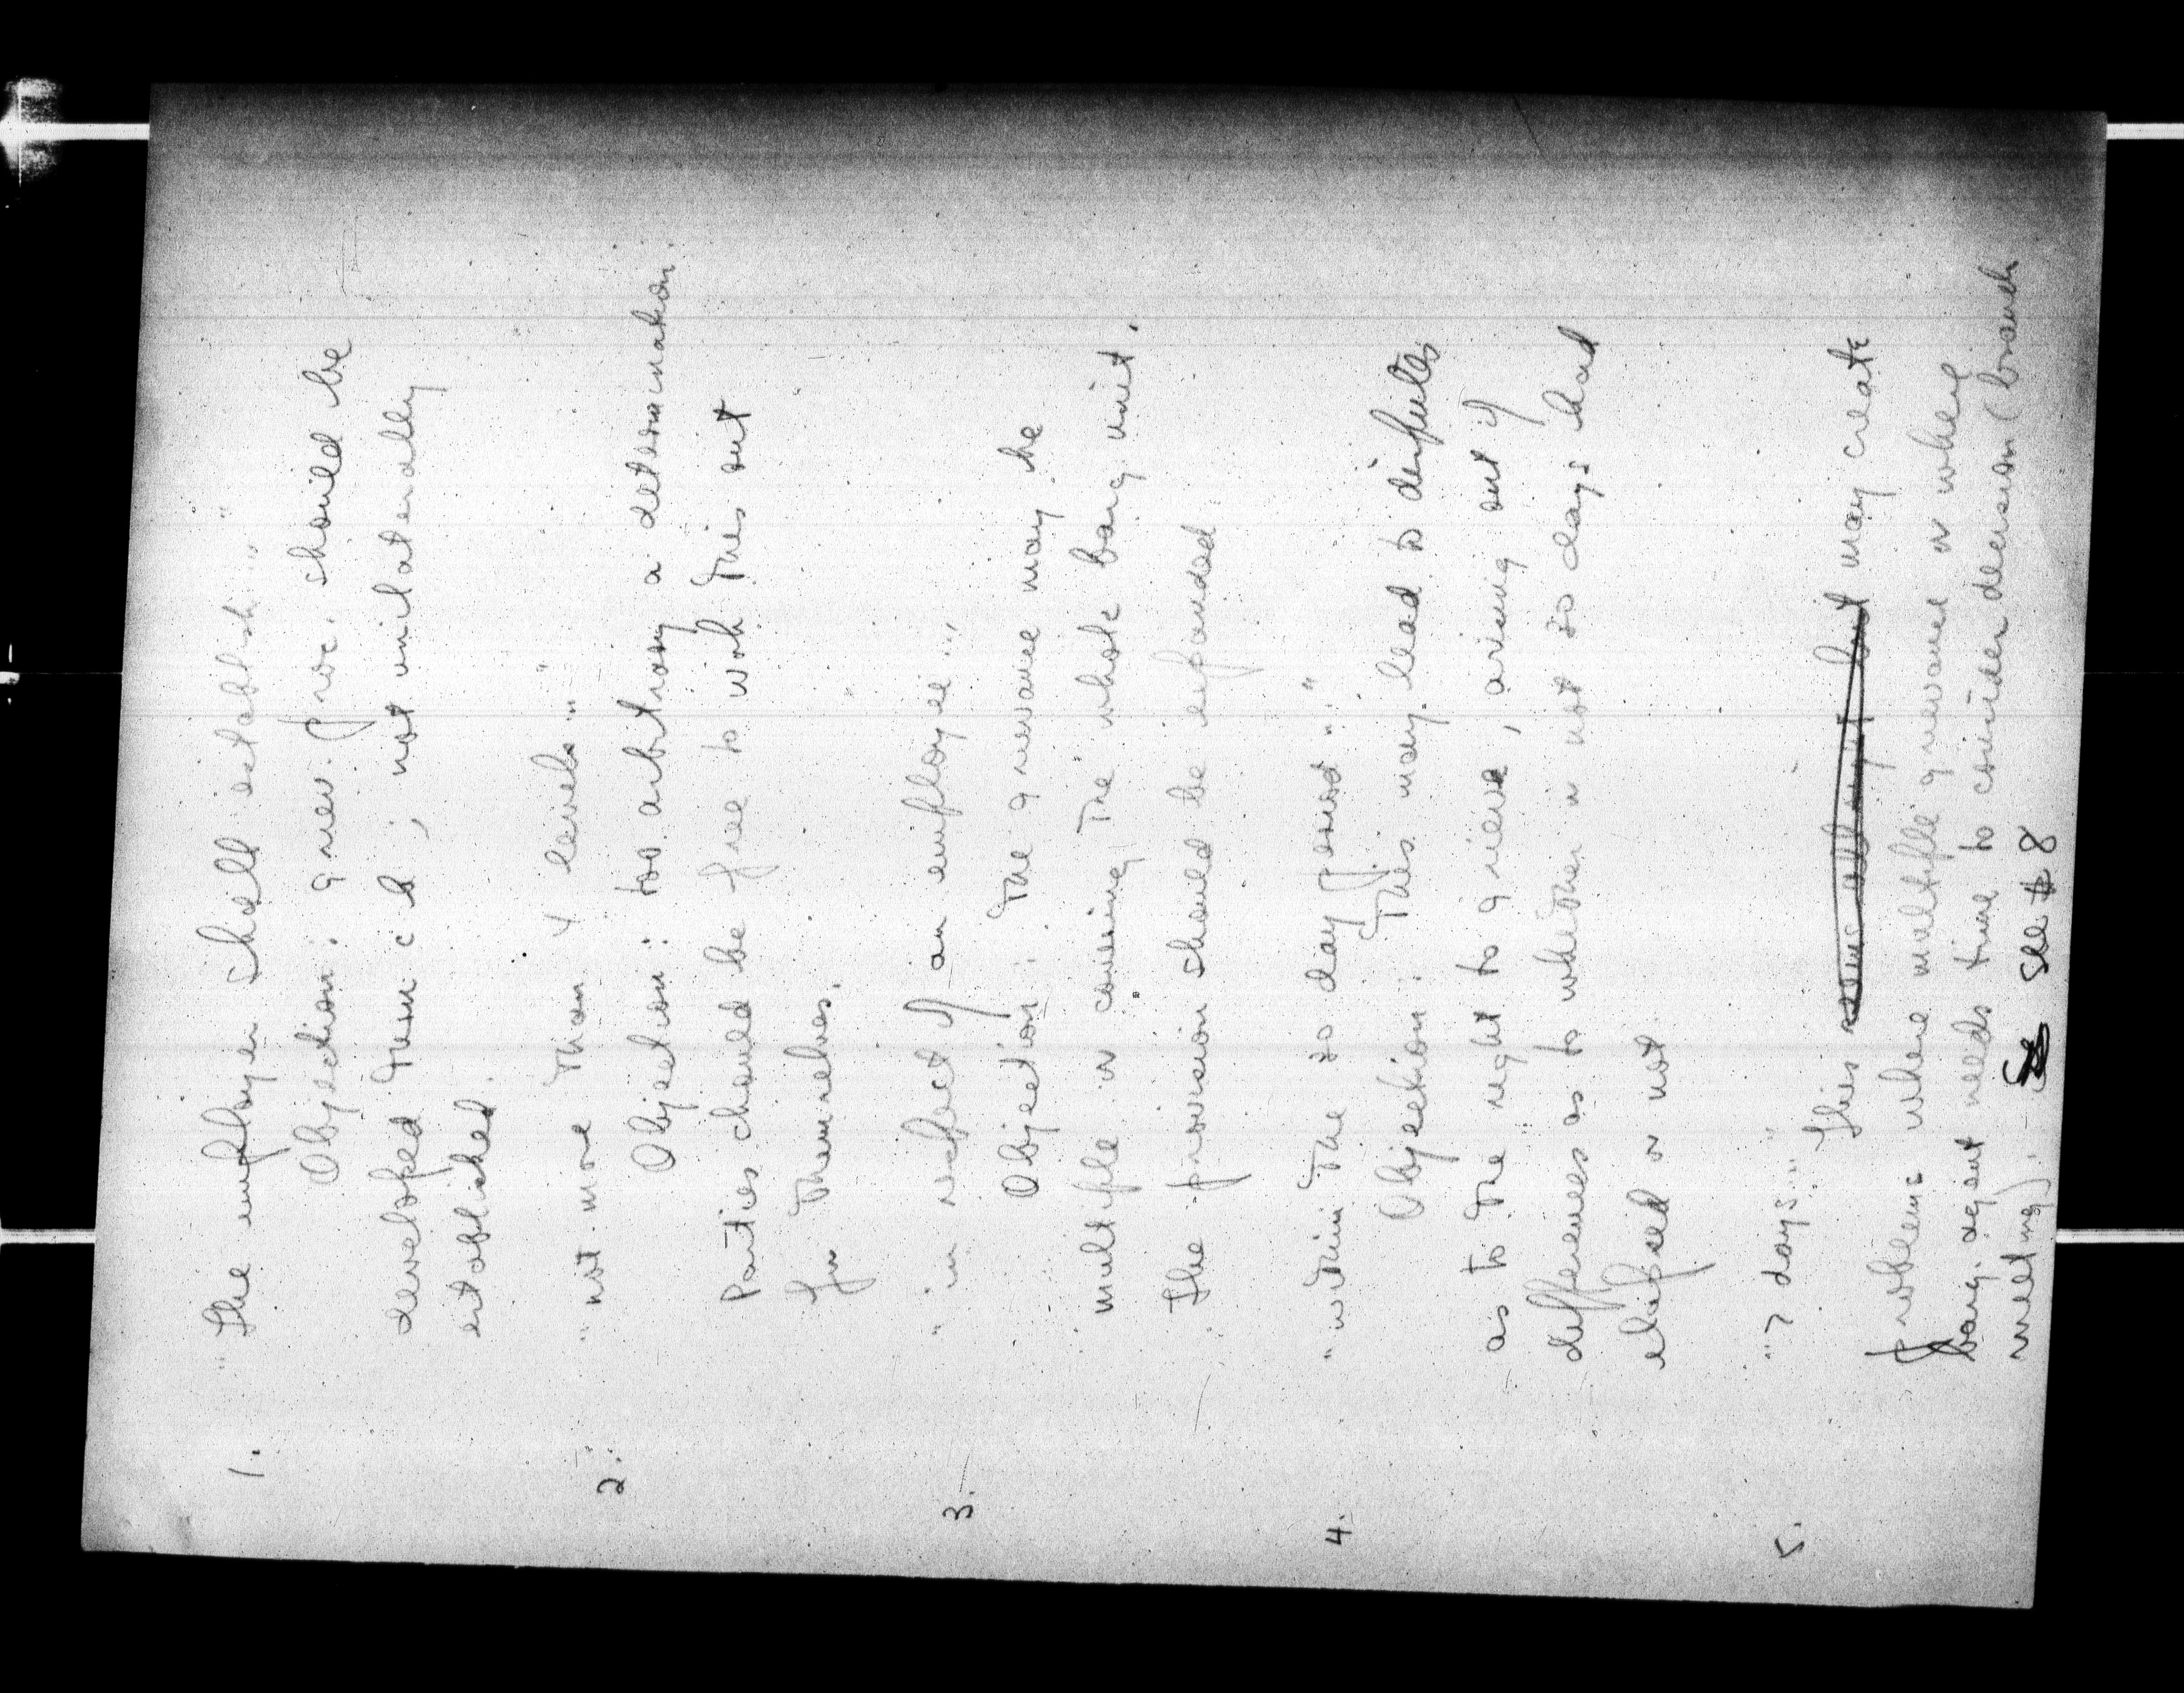 1. "The employer shall establish..."
Objection: griev. proc. should be
developed thru c b; not unilaterally
established.
2. "not more than 4 levels..."
Objection: too arbitrary a determination.
Parties should be free to work this out
for themselves.
3. "in respect of an employee..."
Objection: The grievance may be
multiple or covering the whole barg. unit.
The provision should be expanded
4. "within the 30 day period..."
Objection: This may lead to disputes
as to the right to grieve, arising out of
differences as to whether or not 30 days had
elapsed or not
5. "7 days..."
This may create
problems where multiple grievance or where
barg. agent needs time to consider decision (branch
meeting). See #8